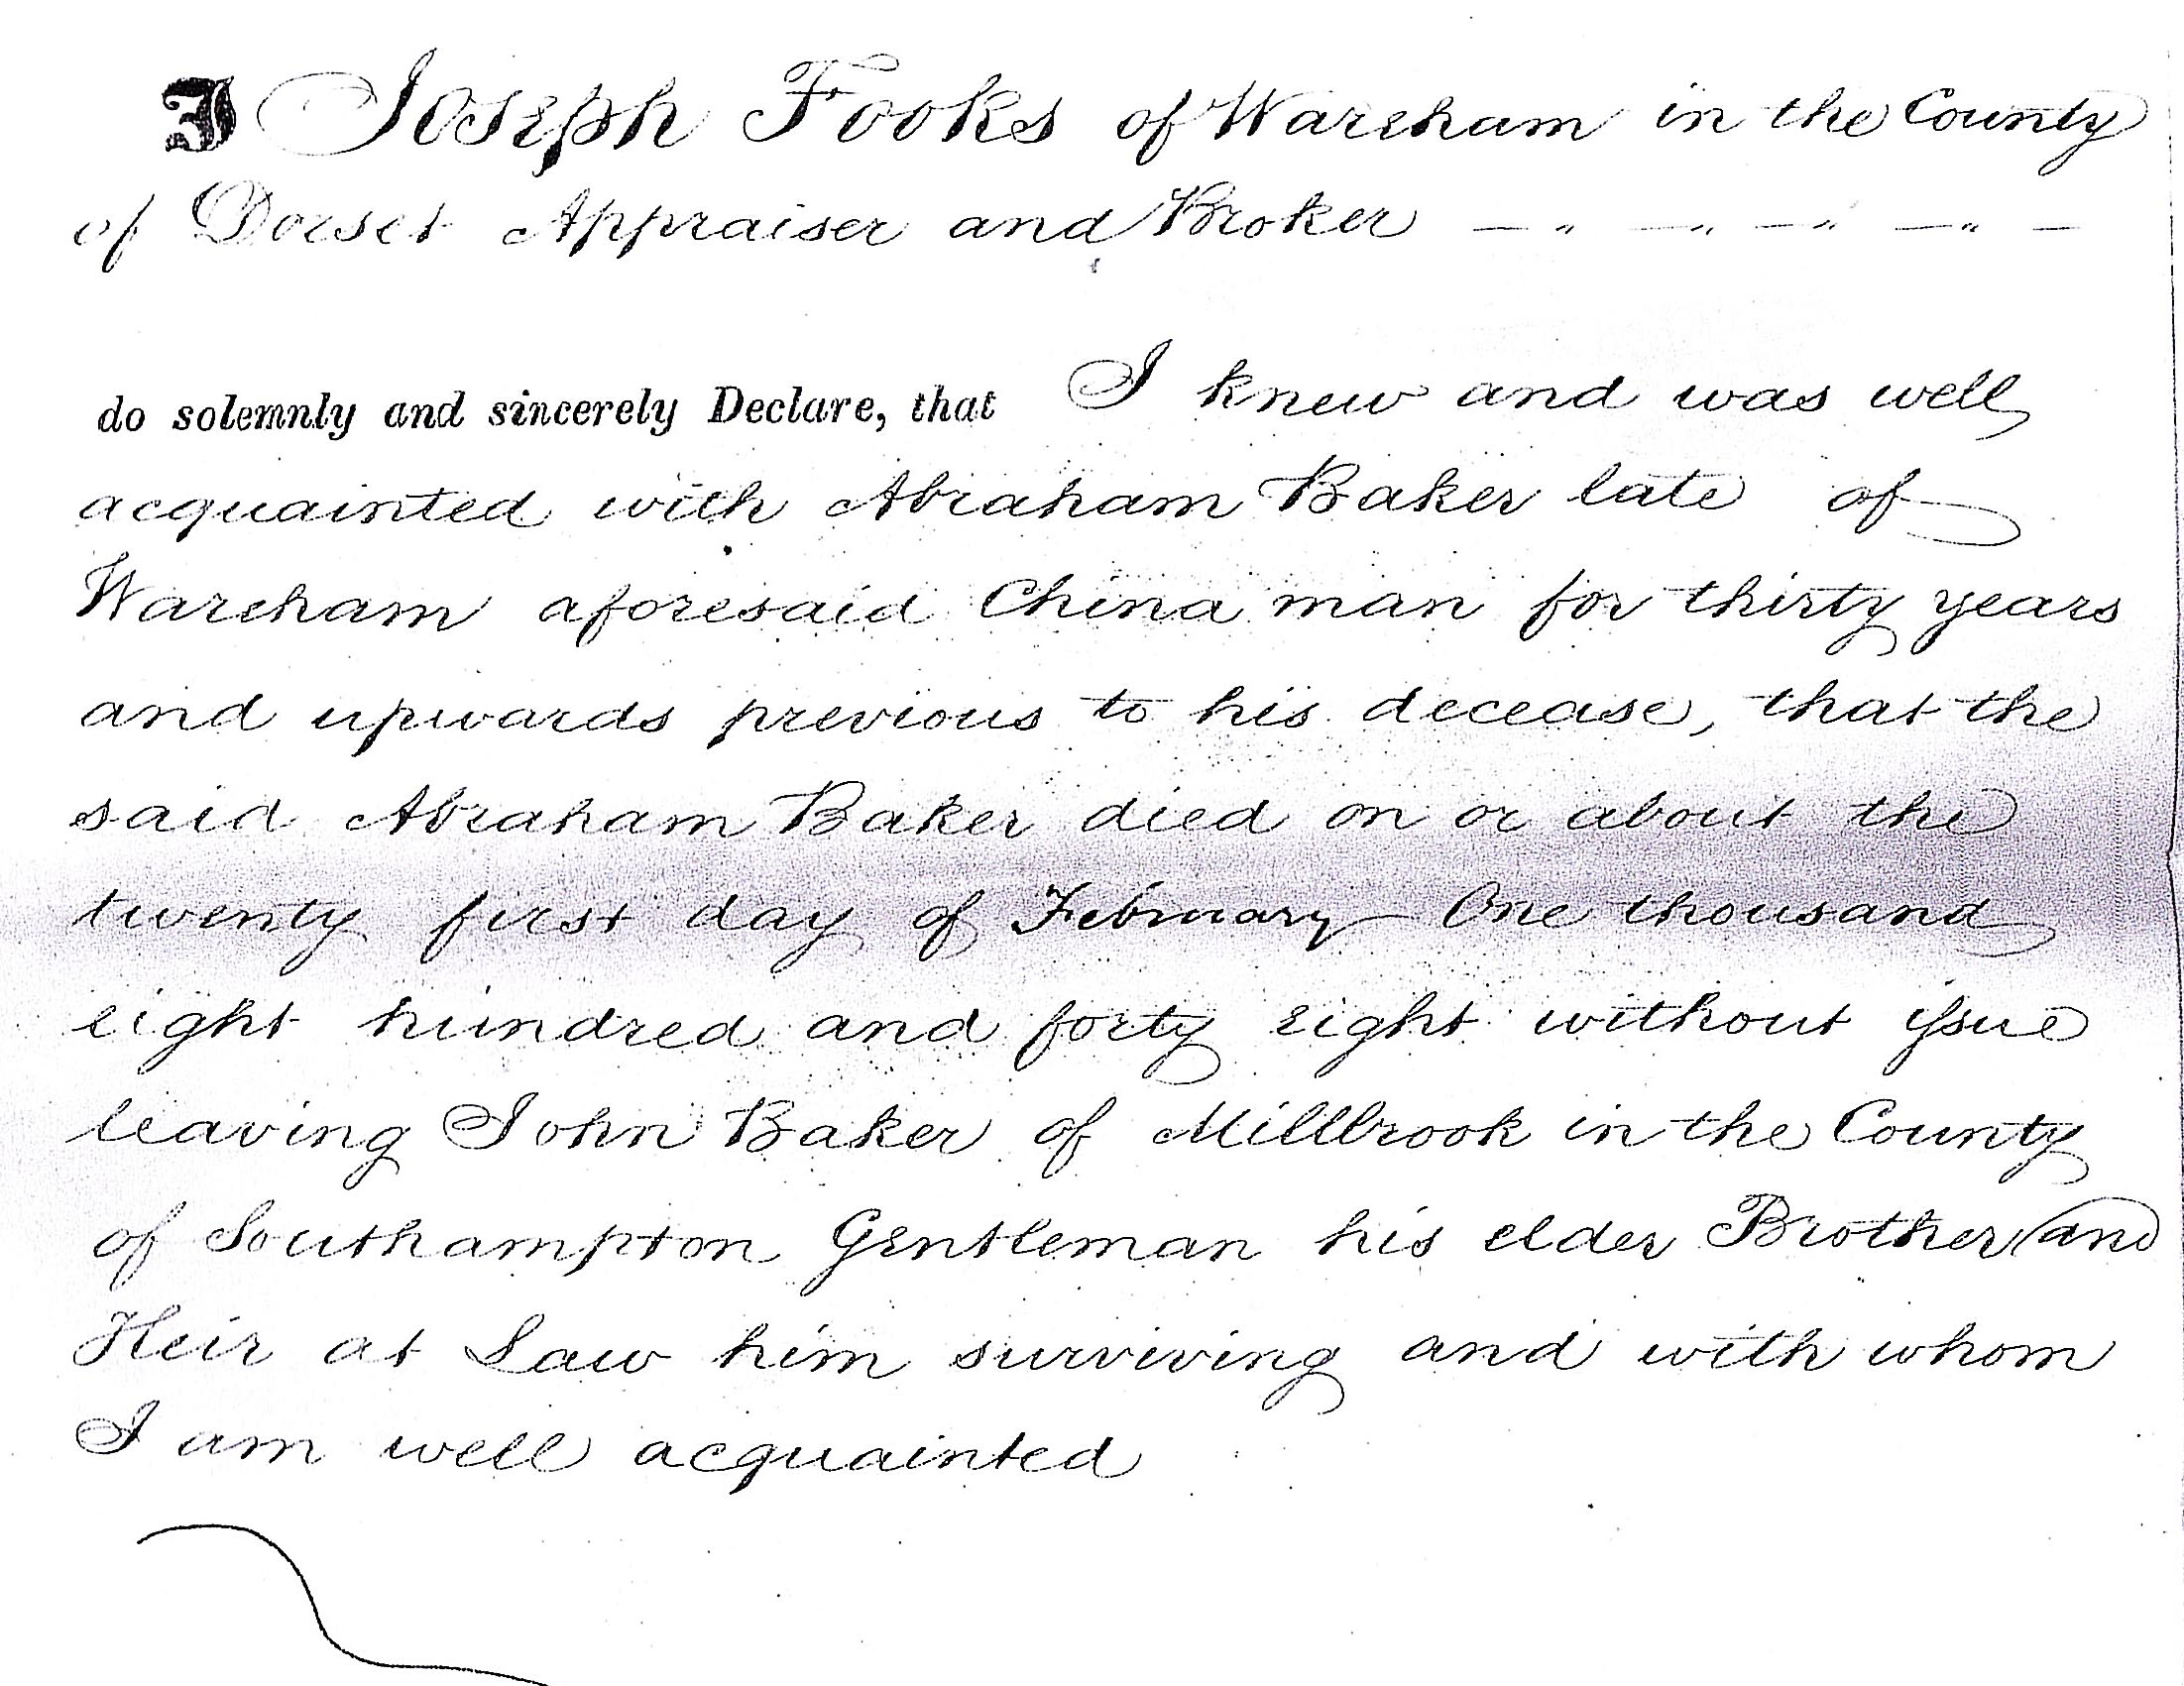 I Joseph Fooks of Wareham in the County
of Dorset Appraiser and Broker — " — " — " — " —
do solemnly and sincerely Declare, that I knew and was well
acquainted with Abraham Baker late of
Wareham aforesaid China man for thirty years
and upwards previous to his decease, that the
said Abraham Baker died on or about the
twenty first day of February One thousand
eight hundred and forty eight without ifsue
leaving John Baker of Millbrook in the County
of Southampton Gentleman his elder Brother and
Heir at Law him surviving and with whom
I am well acquainted